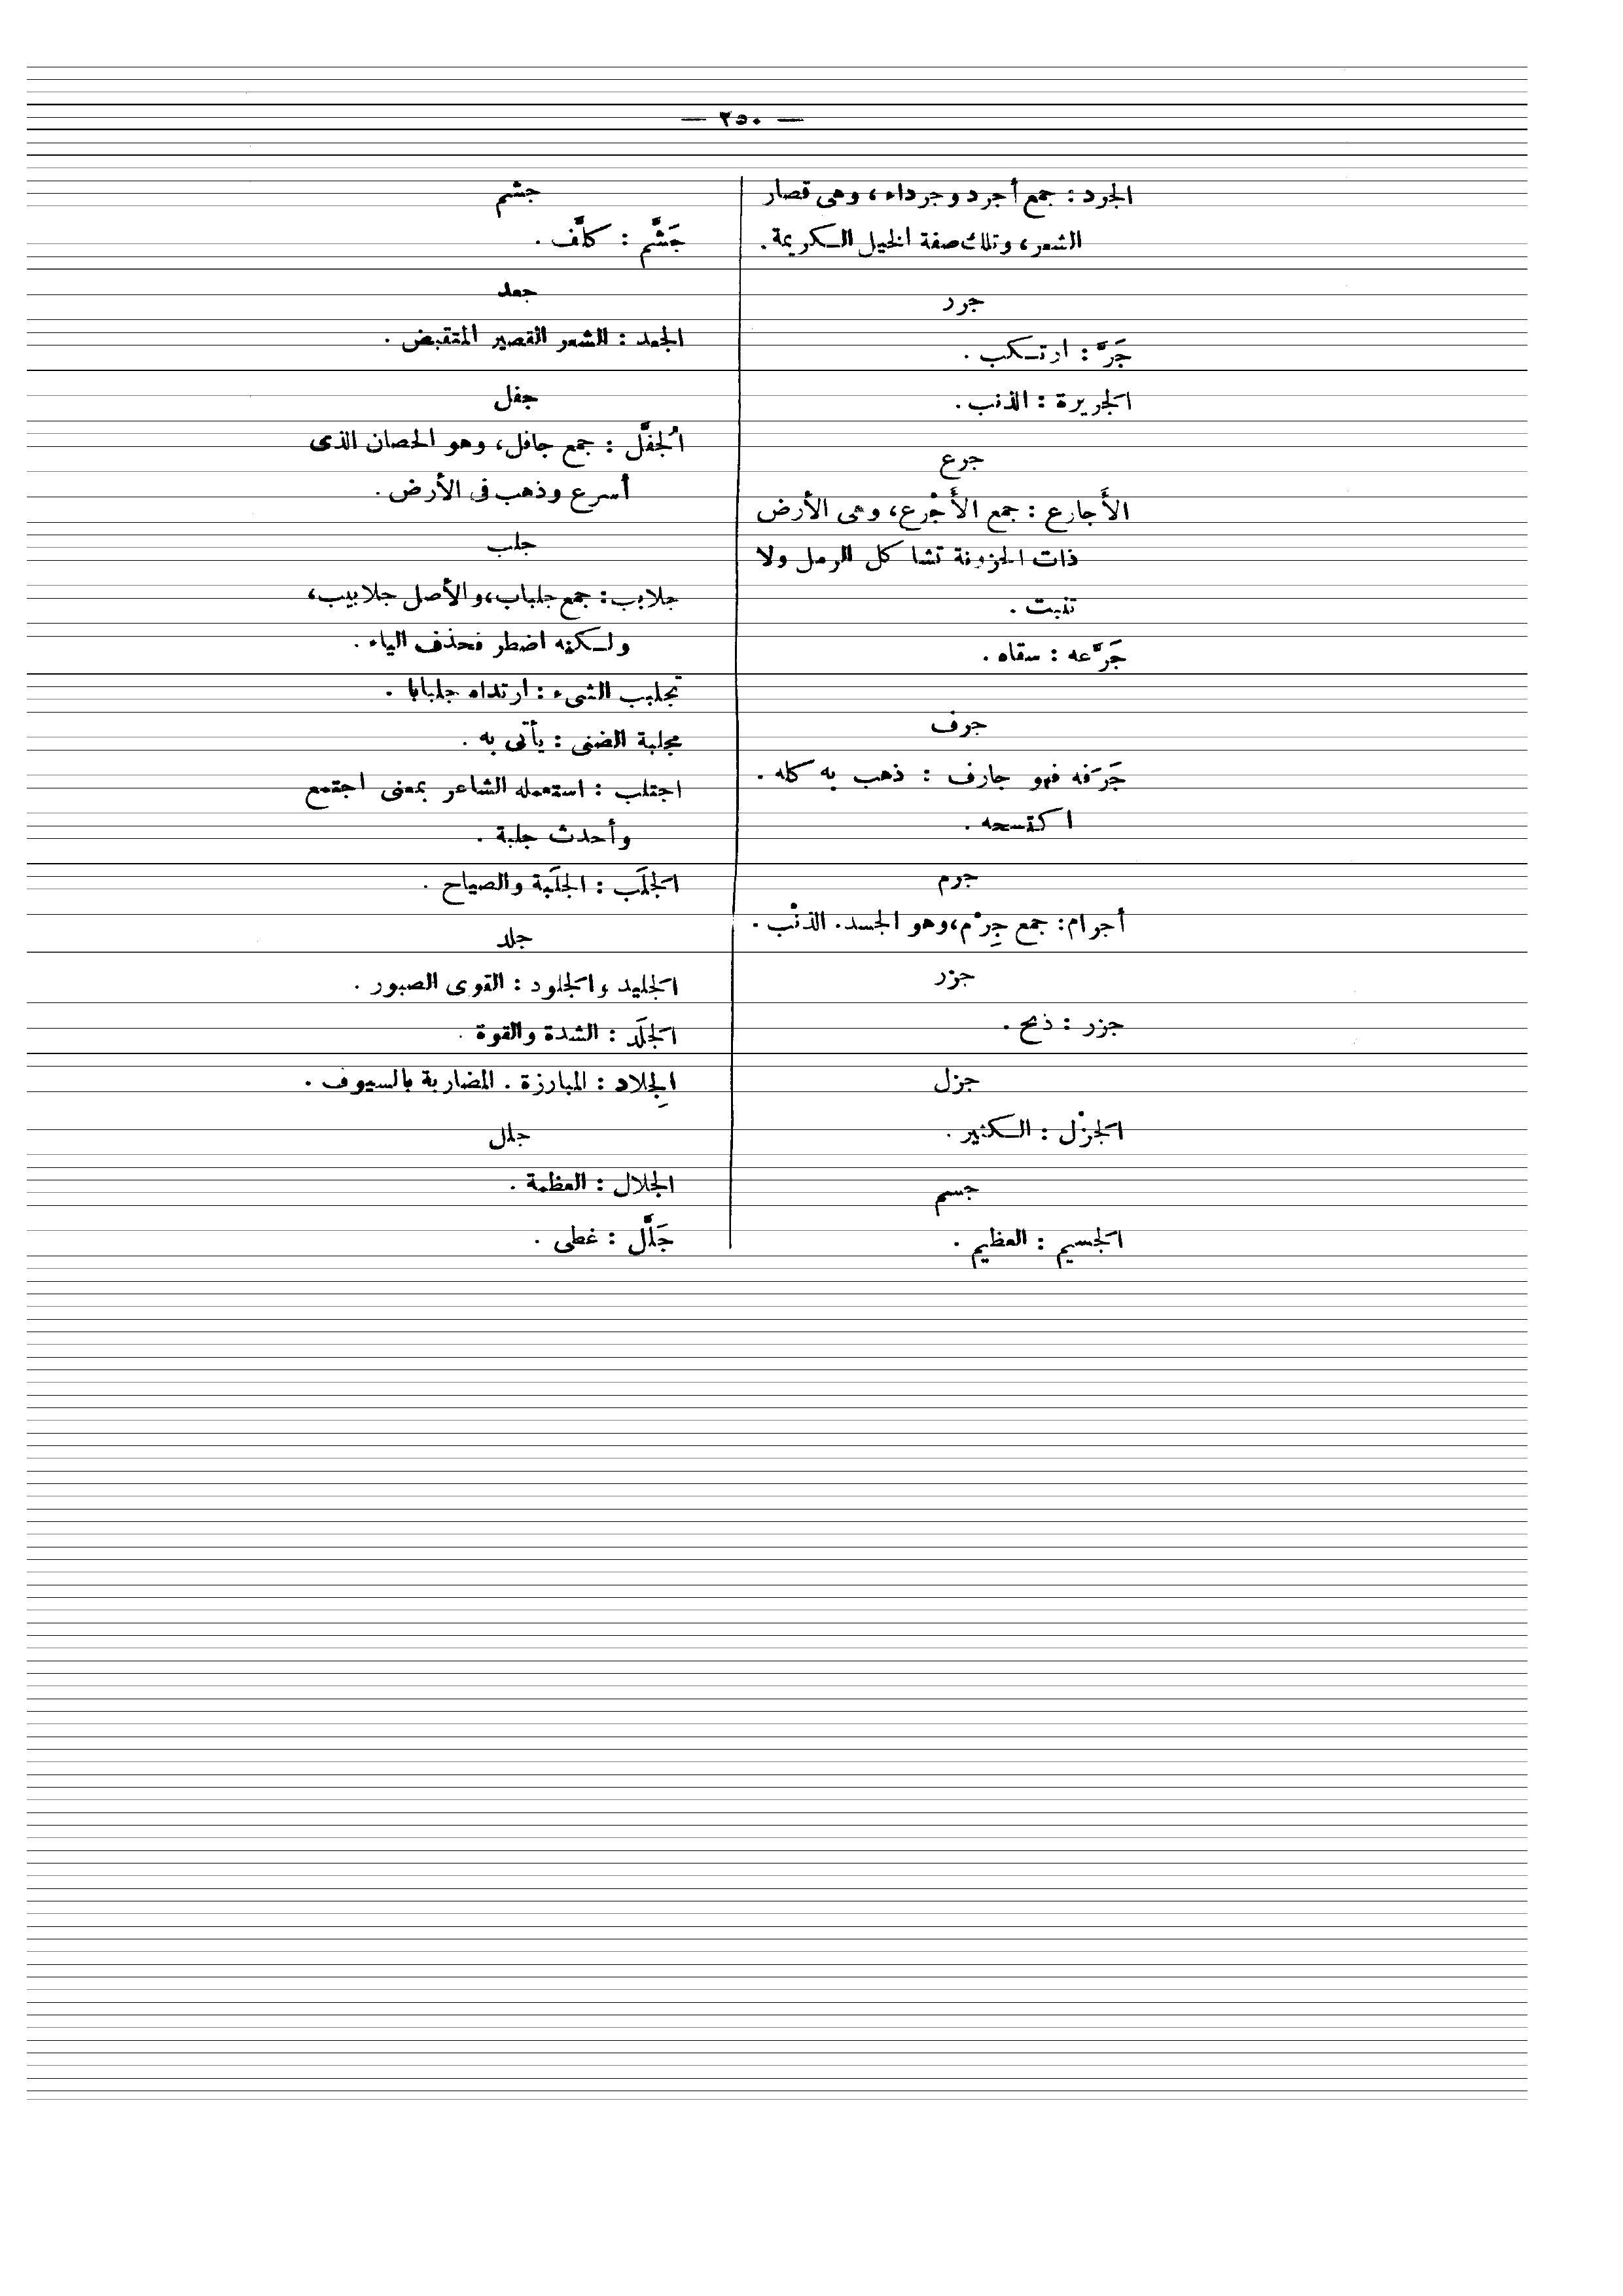 — ٢٥٠ —
الجرد : جمع أجرد وجرداء ، وهى قصار
الشعر ، وتلك صفة الخيل الكريمة .
جرر
جَرَّ : ارتكب .
الجَريرة : الذنب .
جرع
الأَجارع : جمع الأَجْرع ، وهى الأرض
ذات الحزونة تشاكل الرمل ولا
تنبت .
جَرَّعه : سقاه .
جرف
جَرَفه فهو جارف : ذهب به كله .
اكتسحه .
جرم
أجرام : جمع جِرْم ، وهو الجسد . الذنْب .
جزر
جزر : ذبح .
جزل
الجَزْل : الكثير .
جسم
الجَسيم : العظيم .
جشم
جَشَّم : كلَّف .
جعد
الجعد : الشعر القصير المتقبض .
جفل
الجُفَّل : جمع جافل ، وهو الحصان الذى
أسرع وذهب فى الأرض .
جلب
جلابب : جمع جلباب ، والأصل جلابيب ،
ولكنه اضطر فحذف الياء .
تجلبب الشىء : ارتداه جلبابا .
مجلبة الضنى : يأتى به .
اجتلب : استعمله الشاعر بمعنى اجتمع
وأحدث جلبة .
الجَلَب : الجلَبة والصياح .
جلد
الجَليد والجَلود : القوى الصبور .
الجَلَد : الشدة والقوة .
الجِلاد : المبارزة . المضاربة بالسيوف .
جلل
الجلال : العظمة .
جَلَّل : غطى .